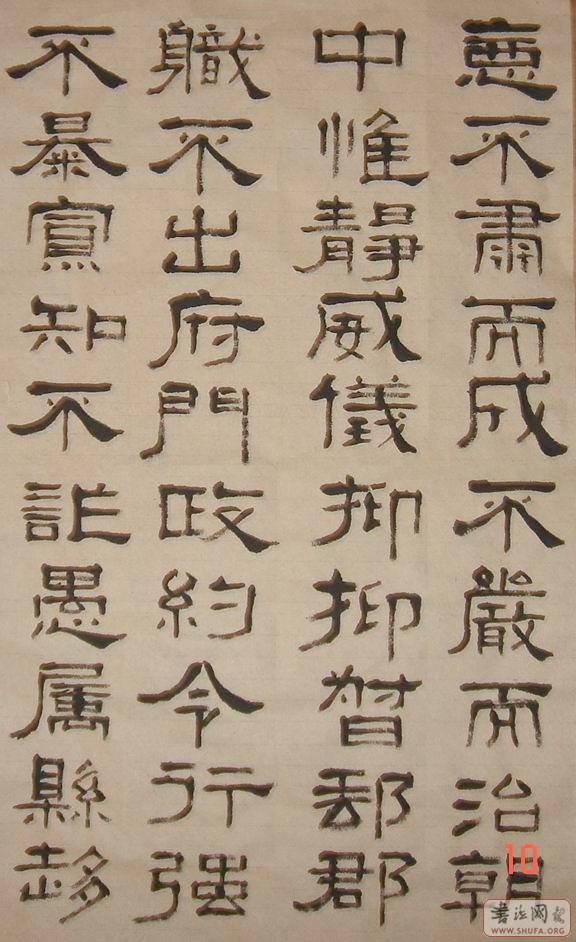 惪不肅而成不嚴而治朝
中惟靜威儀抑抑督郵郡
職不出府門政約令行強
不暴寡知不詐愚属縣趍
10
书法网
WWW.SHUFA.ORG